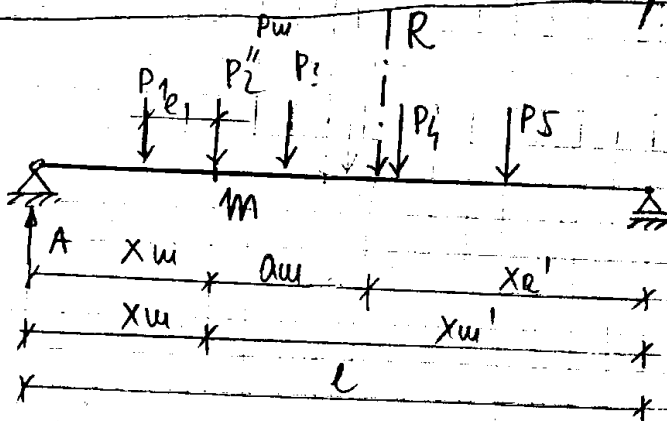 Pm
R
P1 P2" P3
e1
P4 P5
m
A
xm am xR'
xm xm'
l